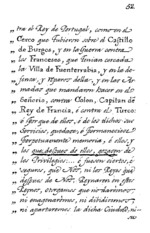 52
„ tra el Rey de Portugal, como en el
„ Cerco que tubieron sobre el Castillo
„ de Burgos, y en la Guerra contra
„ los Franceses, que tenian cercada
„ la Villa de Fuenterrabia, y en la de-
„ fensa, y reparo della, y en las Ar-
„ madas que mandaron hacer en el
„ Señorio, contra Colon, Capitan del
„ Rey de Francia, é contra el Turco:
„ é por que de ellos, é de los dichos sus
„ Servicios, quedase, é permaneciese
„ perpetuamente memoria, é ellos, y
„ los que despues de ellos,
„ los Privilegios
„ que Nos, ni los Reyes que
„ despues de Nos, Reynaren en estos
„ Reynos, otorgamos que no daremos,
„ ni enagenaremos, ni dividiremos
„ ni apartaremos la dicha Ciudad,